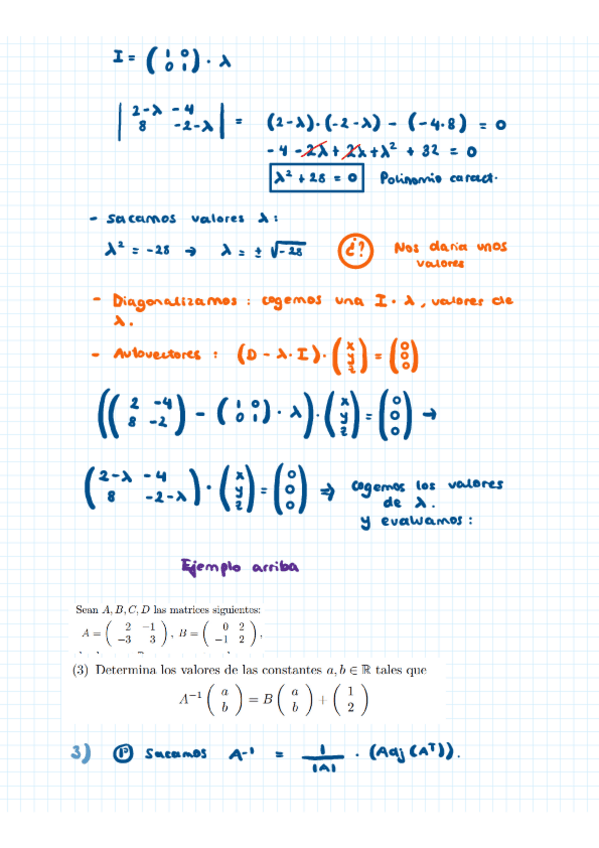 I = ( 1 0 0 1 ) · λ
| 2-λ -4 8 -2-λ | = (2-λ)·(-2-λ) - (-4·8) = 0
-4 -2λ + 2λ + λ² + 32 = 0
λ² + 28 = 0 Polinomio caract.
- Sacamos valores λ:
λ² = -28 → λ = ± √-28 ¿? Nos daría unos valores
- Diagonalizamos : cogemos una I · λ, valores de
λ.
- Autovectores : (D - λ·I)·( x y z ) = ( 0 0 0 )
(( 2 -4 8 -2 ) - ( 1 0 0 1 ) · λ)·( x y z ) = ( 0 0 0 ) →
( 2-λ -4 8 -2-λ )·( x y z ) = ( 0 0 0 ) ⇒ cogemos los valores
de λ.
y evaluamos :
Ejemplo arriba
Sean A, B, C, D las matrices siguientes:
A = ( 2 -1 -3 3 ), B = ( 0 2 -1 2 ),
(3) Determina los valores de las constantes a, b ∈ ℝ tales que
A⁻¹ ( a b ) = B ( a b ) + ( 1 2 )
3) Sacamos A⁻¹ = 1/|A| · (Adj (Aᵀ)).